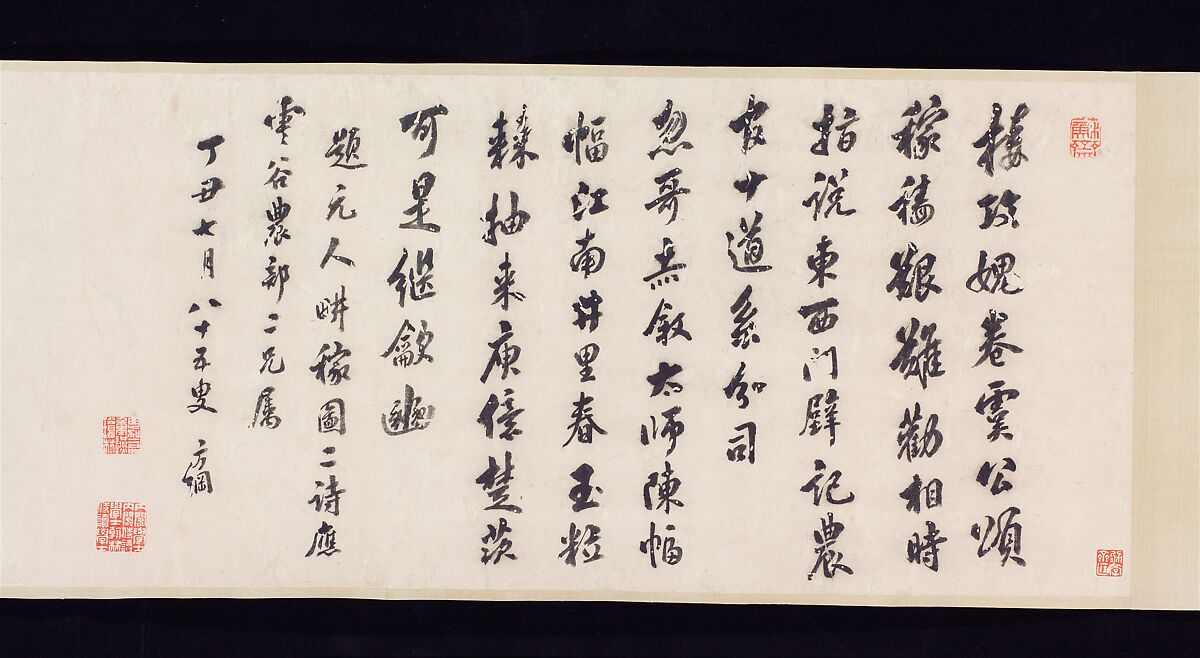 樓攻媿卷虞公頌
稼穡艱難勸相時
指說東西門壁記農
官廿道系分司
忽哥赤敘太師陳幅
幅江南井里春玉粒
抽來庾億楚茨
可是繼龡豳
題元人畊稼圖二詩應
雲谷農部二兄屬
丁丑七月八十五叟方綱